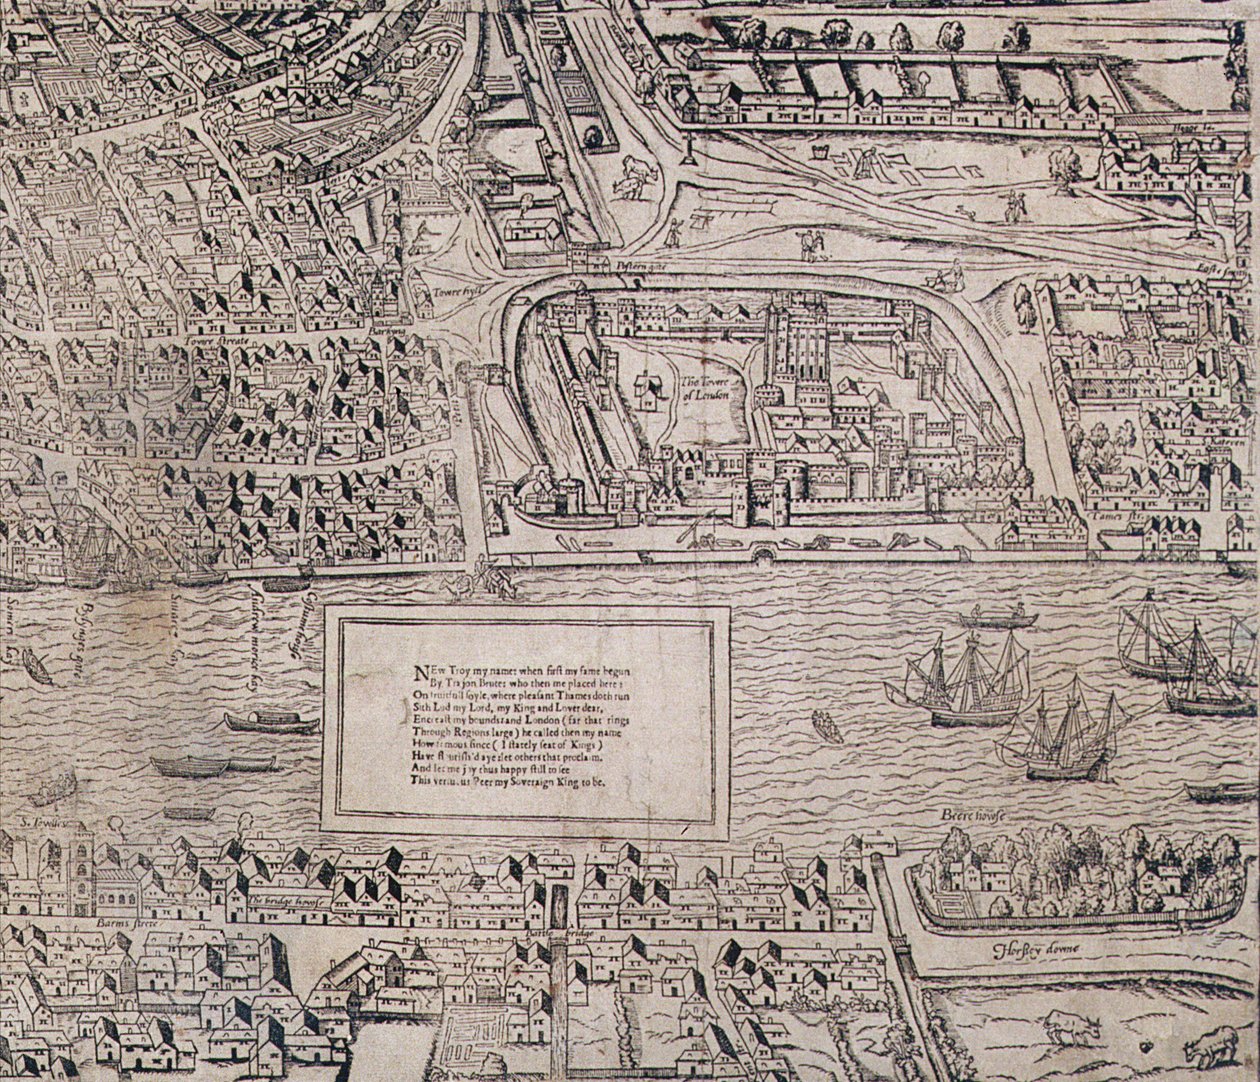 Hogge la.
Posterngate
East smi
Towre hyll
Barkyng
Towre streate
The Towre
of London
Kateren
S. James
Somers kay
Byllynges gate
Custumhouse
NEw Troy my name: when first my fame begun
By Trojan Brute: who then me placed here:
On fruitfull soyle, where pleasant Thames doth run
Sith Lud my Lord, my King and Lover dear,
Encreast my bounds: and London (far that rings
Through Regions large) he called then my name
How famous since (I stately seat of Kings)
Have flourish'd aye: let others that proclaim.
And let me joy thus happy still to see
This vertuous Peer my Soveraign King to be.
Beere howse
S. Towlles
The bridge howse
Barms strete
Battle bridge
Horsey downe